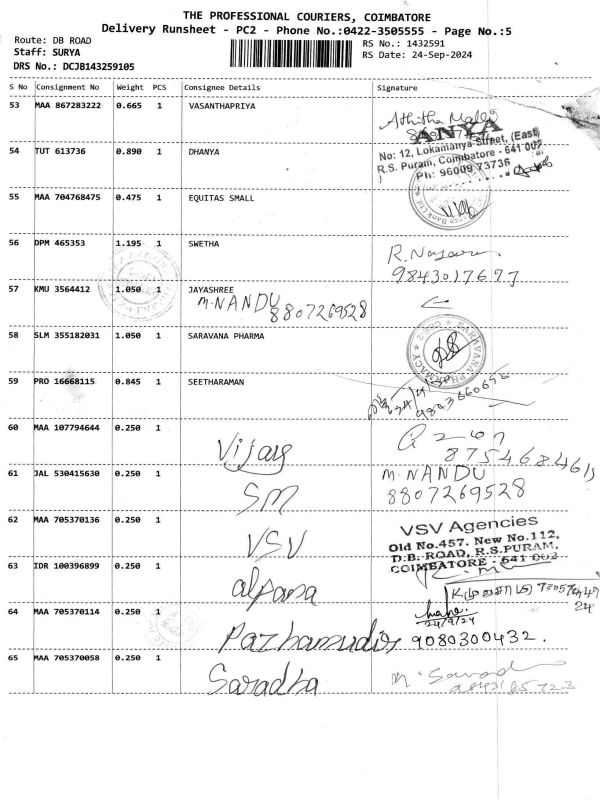 THE PROFESSIONAL COURIERS, COIMBATORE
Delivery Runsheet - PC2 - Phone No.:0422-3505555 - Page No.:5
Route: DB ROAD
Staff: SURYA
DRS No.: DCJB143259105
RS No.: 1432591
RS Date: 24-Sep-2024
S No Consignment No Weight PCS Consignee Details Signature
53 MAA 867283222 0.665 1 VASANTHAPRIYA
ANYA
No: 12, Lokamanya Street, (East)
R.S. Puram, Coimbatore - 641 002
Ph: 96009 73736
54 TUT 613736 0.890 1 DHANYA
55 MAA 704768475 0.475 1 EQUITAS SMALL
56 DPM 465353 1.195 1 SWETHA
9843017677
57 KMU 3564412 1.050 1 JAYASHREE
M.NANDU
8807269528
58 SLM 355182031 1.050 1 SARAVANA PHARMA
SARAVANA PHARMACY
59 PRO 16668115 0.845 1 SEETHARAMAN
60 MAA 107794644 0.250 1 Vijay
61 JAL 530415630 0.250 1 SM M.NANDU
8807269528
62 MAA 705370136 0.250 1 VSV
VSV Agencies
Old No.457, New No.112,
D.B. ROAD, R.S.PURAM,
COIMBATORE - 641 002
63 IDR 100396899 0.250 1 alpana
64 MAA 705370114 0.250 1 Pazhamudir
24/9/24
9080300432.
65 MAA 705370058 0.250 1 Saradha